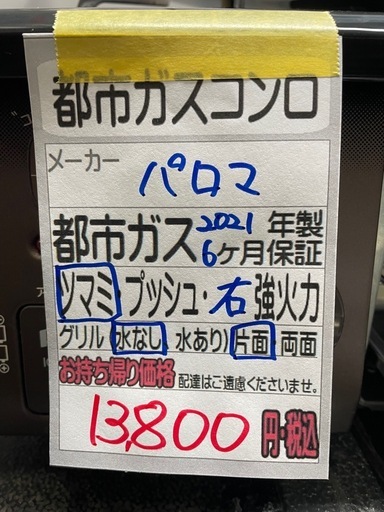 都市ガスコンロ
メーカー
パロマ
都市ガス 2021年製
6ヶ月保証
ツマミ プッシュ・右強火力
グリル(水なし 水あり)片面・両面
お持ち帰り価格 配達はご遠慮くださいませ。
13,800円・税込